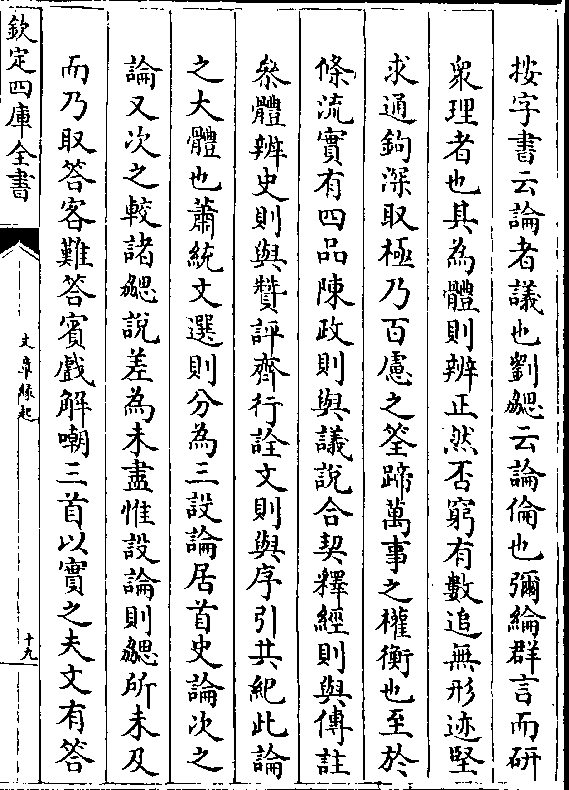 按字書云論者議也劉勰云論倫也彌綸群言而研
衆理者也其為體則辨正然否窮有數追無形迹堅
求通鉤深取極乃百慮之筌蹄萬事之權衡也至於
條流實有四品陳政則與議說合契釋經則與傳註
叅體辨史則與贊評齊行詮文則與序引共紀此論
之大體也蕭統文選則分為三設論居首史論次之
論又次之較諸勰說差為未盡惟設論則勰所未及
而乃取答客難答賓戲解嘲三首以實之夫文有答
欽定四庫全書
文章緣起
十九